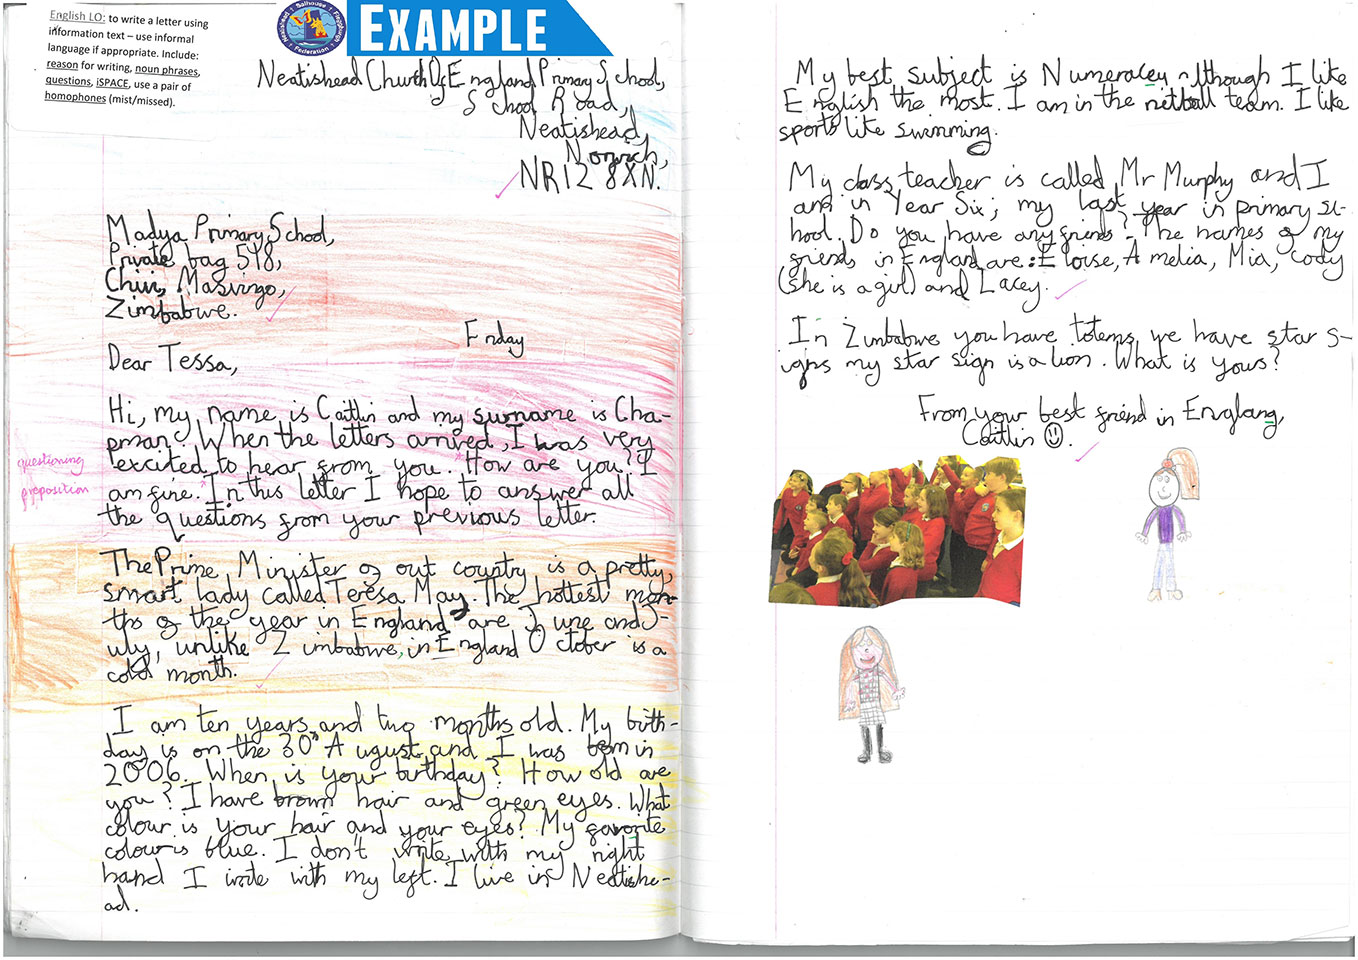 English LO: to write a letter using
information text – use informal
language if appropriate. Include:
reason for writing, noun phrases,
questions, iSPACE, use a pair of
homophones (mist/missed).
EXAMPLE
Neatishead Church Of England Primary School,
School Road,
Neatishead,
Norwich,
NR12 8XN.
Madya Primary School,
Private bag 518,
Chivi, Masvingo,
Zimbabwe.
Friday
Dear Tessa,
Hi, my name is Caitlin and my surname is Cha-
pman. When the letters arrived, I was very
excited to hear from you. How are you? I
am fine. In this letter I hope to answer all
the questions from your previous letter.
questioning
preposition
The Prime Minister of out country is a pretty,
smart lady called Teresa May. The hottest mon-
ths of the year in England are June and J-
uly, unlike Zimbabwe, in England October is a
cold month.
I am ten years and two months old. My birth-
day is on the 30th August and I was born in
2006. When is your birthday? How old are
you? I have brown hair and green eyes. What
colour is your hair and your eyes? My favorite
colour is blue. I don't write with my right
hand I write with my left. I live in Neatishe-
ad.
My best subject is Numeracey although I like
English the most. I am in the netball team. I like
sports like swimming.
My class teacher is called Mr Murphy and I
am in Year Six; my last year in primary sc-
hool. Do you have any friends? The names of my
friends in England are: Eloise, Amelia, Mia, Cody
(she is a girl) and Lacey.
In Zimbabwe you have totems, we have star s-
igns my star sign is a lion. What is yours?
From your best friend in England,
Caitlin ☺.